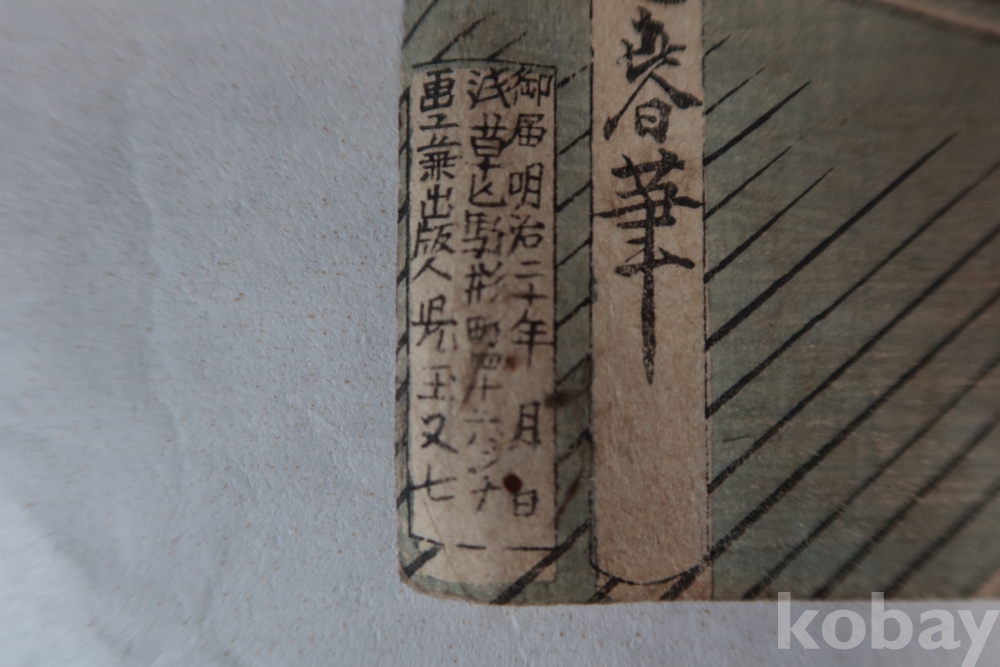 春筆
御届明治二十年 月 日
浅草区駒形町四十六
画工兼出版人 児玉又七
kobay